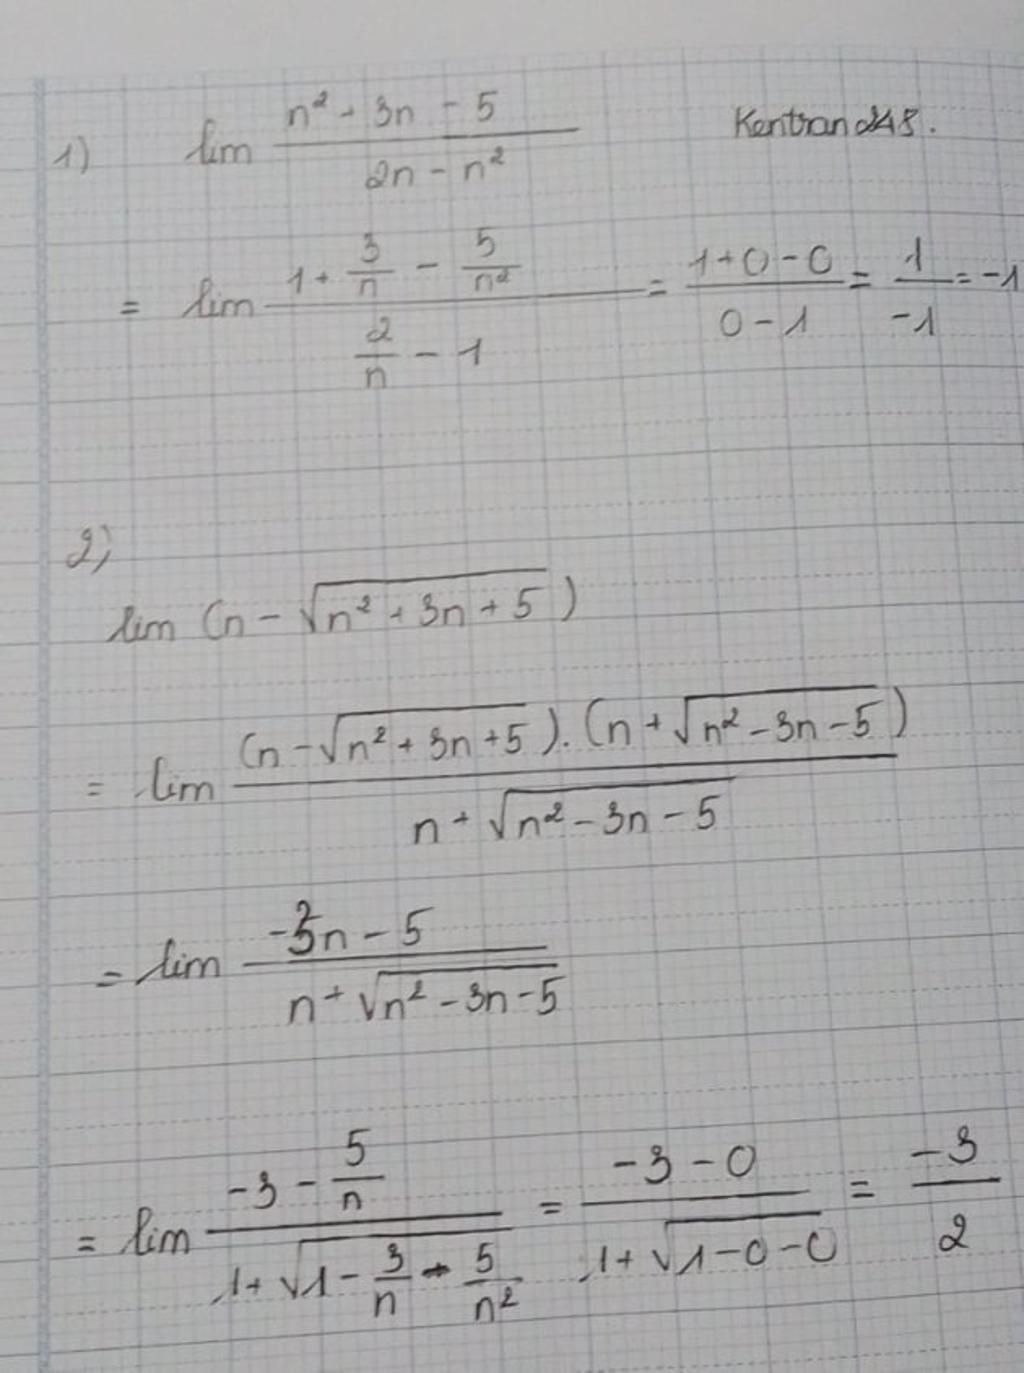 1) lim \frac{n² + 3n - 5}{2n - n²} Kentran248.
= lim \frac{1 + \frac{3}{n} - \frac{5}{n²}}{\frac{2}{n} - 1} = \frac{1+0-0}{0-1} = \frac{1}{-1} = -1
2)
lim (n - \sqrt{n² + 3n + 5})
= lim \frac{(n - \sqrt{n² + 3n + 5}).(n + \sqrt{n² - 3n - 5})}{n + \sqrt{n² - 3n - 5}}
= lim \frac{-3n - 5}{n + \sqrt{n² - 3n - 5}}
= lim \frac{-3 - \frac{5}{n}}{1 + \sqrt{1 - \frac{3}{n} - \frac{5}{n²}}} = \frac{-3 - 0}{1 + \sqrt{1 - 0 - 0}} = \frac{-3}{2}